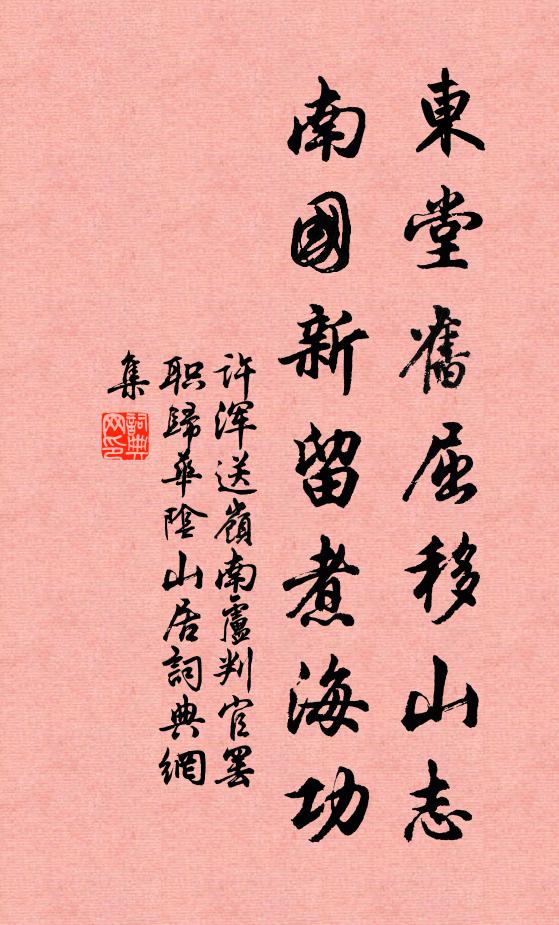 東堂舊屈移山志
南國新留煮海功
许渾送嶺南盧判官罢
职歸華陰山居詞典網
集
詞典
网印